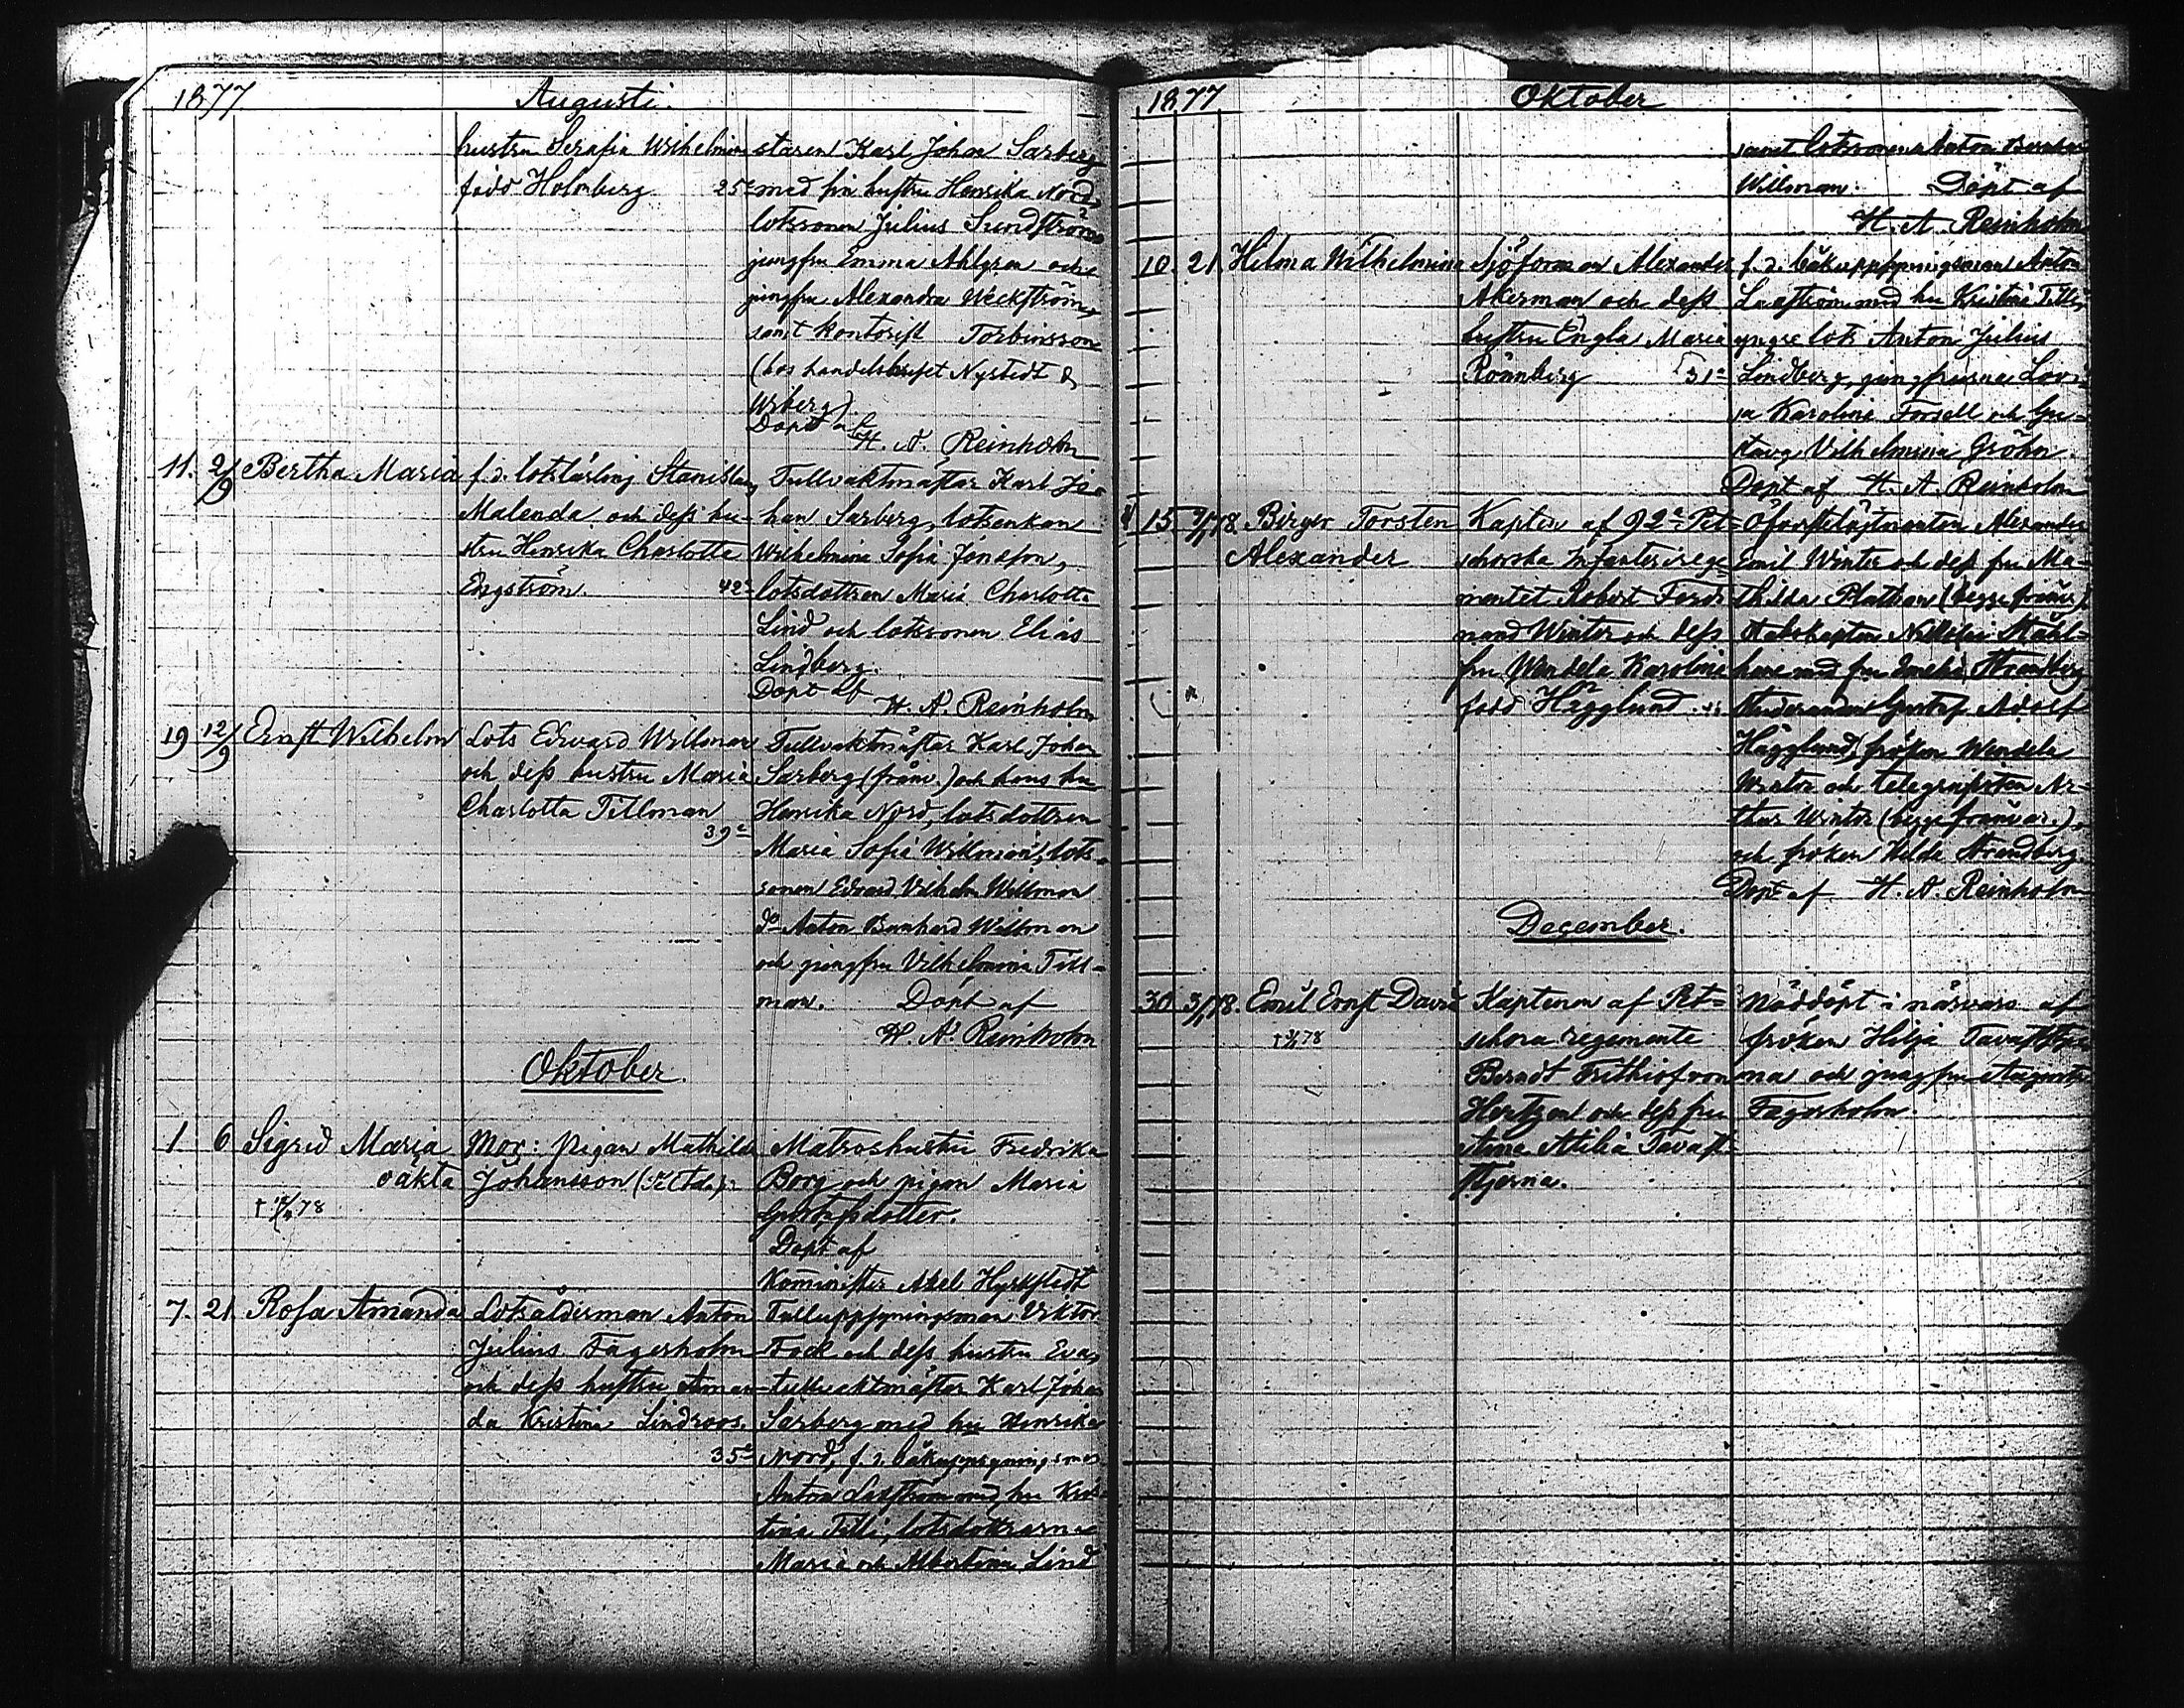 1877 Augusti.
hustru Serafia Wilhelmina
född Holmberg 25 a
staren Karl Johan Sarberg
med sin hustru Henrika Nord,
lotssonen Julius Sundström
jungfru Emma Ahlgren och
jungfru Alexandra Weckström,
samt kontorist Torbinsson
(hos handelshuset Nystedt &
Wiberg).
Döpt af
H. A. Reinholm
11. 2/9 Bertha Maria
f. d. lotslärling Stanislaus
Malenda och dess hu-
stru Henrika Charlotta
Engström. 42 a
Tullvaktmästar Karl Jo-
han Sarberg, lotsenkan
Wilhelmina Sofia Jonsson,
lotsdottren Maria Charlotta
Lind och lotssonen Elias
Lindberg.
Döpt af
H. A. Reinholm
19 12/9 Ernst Wilhelm
Lots Edvard Willman
och dess hustru Maria
Charlotta Tillman
39 a
Tullvaktmästar Karl Johan
Sarberg (frånv.) och hans hu
Henrika Nord, lotsdottren
Maria Sofia Willman, lots-
sonen Edvard Vilhelm Willman
do Anton Bernhard Willman
och jungfru Vilhelmina Till-
man. Döpt af
H. A. Reinholm
Oktober.
1 6 Sigrid Maria
oäkta
† 78
Mor: pigan Mathilda
Johansson
Matroshustru Fredrika
Borg och pigan Maria
Gustafsdotter.
Döpt af
Kominister Axel Hyrkstedt
7. 21 Rosa Amanda
Lotsålderman Anton
Julius Fagerholm
och dess hustru Aman-
da Kristina Lindroos.
35 a
Tulluppsyningsman Viktor
Fock och dess hustru Eva,
tullvaktmästar Karl Johan
Sarberg med hu Henrika
Nord, f. d. båkuppsyningsman
Anton Laström med hu Kris-
tina Tilli, lotsdöttrarna
Maria och Albertina Lind
1877 Oktober
samt lotssonen Anton Bernhard
Willman. Döpt af
H. A. Reinholm
10. 21 Hilma Wilhelmina
Sjöforman Alexander
Åkerman och dess
hustru Engla Maria
Rönnberg 31 a
f. d. båkuppsyningsman Anton
Laström med hu Kristina Tilli,
yngre lots Anton Julius
Lindberg, jungfrurna Lovi-
sa Karolina Forsell och Gu-
stava Vilhelmina Gröhn.
Döpt af H. A. Reinholm
15 9/1 78. Birger Torsten
Alexander
Kapten af 92 a Pet-
schorska Infanterirege-
mentet Robert Ferdi-
nand Winter och dess
fru Wendela Karolina
född Hägglund
Öfverstelöjtnanten Alexander
Emil Winter och dess fru Ma-
thilda Plathan (begge frånv.)
Stabskapten Nikolai Stål-
hane med fru Amelia Strandberg
Studeranden Gustaf Adolf
Hägglund, fröken Wendela
Winter och telegrafisten Ar-
thur Winter (begge frånvar.)
och fröken Hilda Strandberg.
Döpt af H. A. Reinholm
December.
30 3/1 78. Emil Ernst David
† 78
Kaptenen af Pet-
schora regemente
Berndt Frithiof von
Hertzen och dess fru
Aina Atilia Tavast-
stjerna.
Nöddöpt i närvaro af
fröken Hilja Tavaststjer
na och jungfru Augusta
Fagerholm.